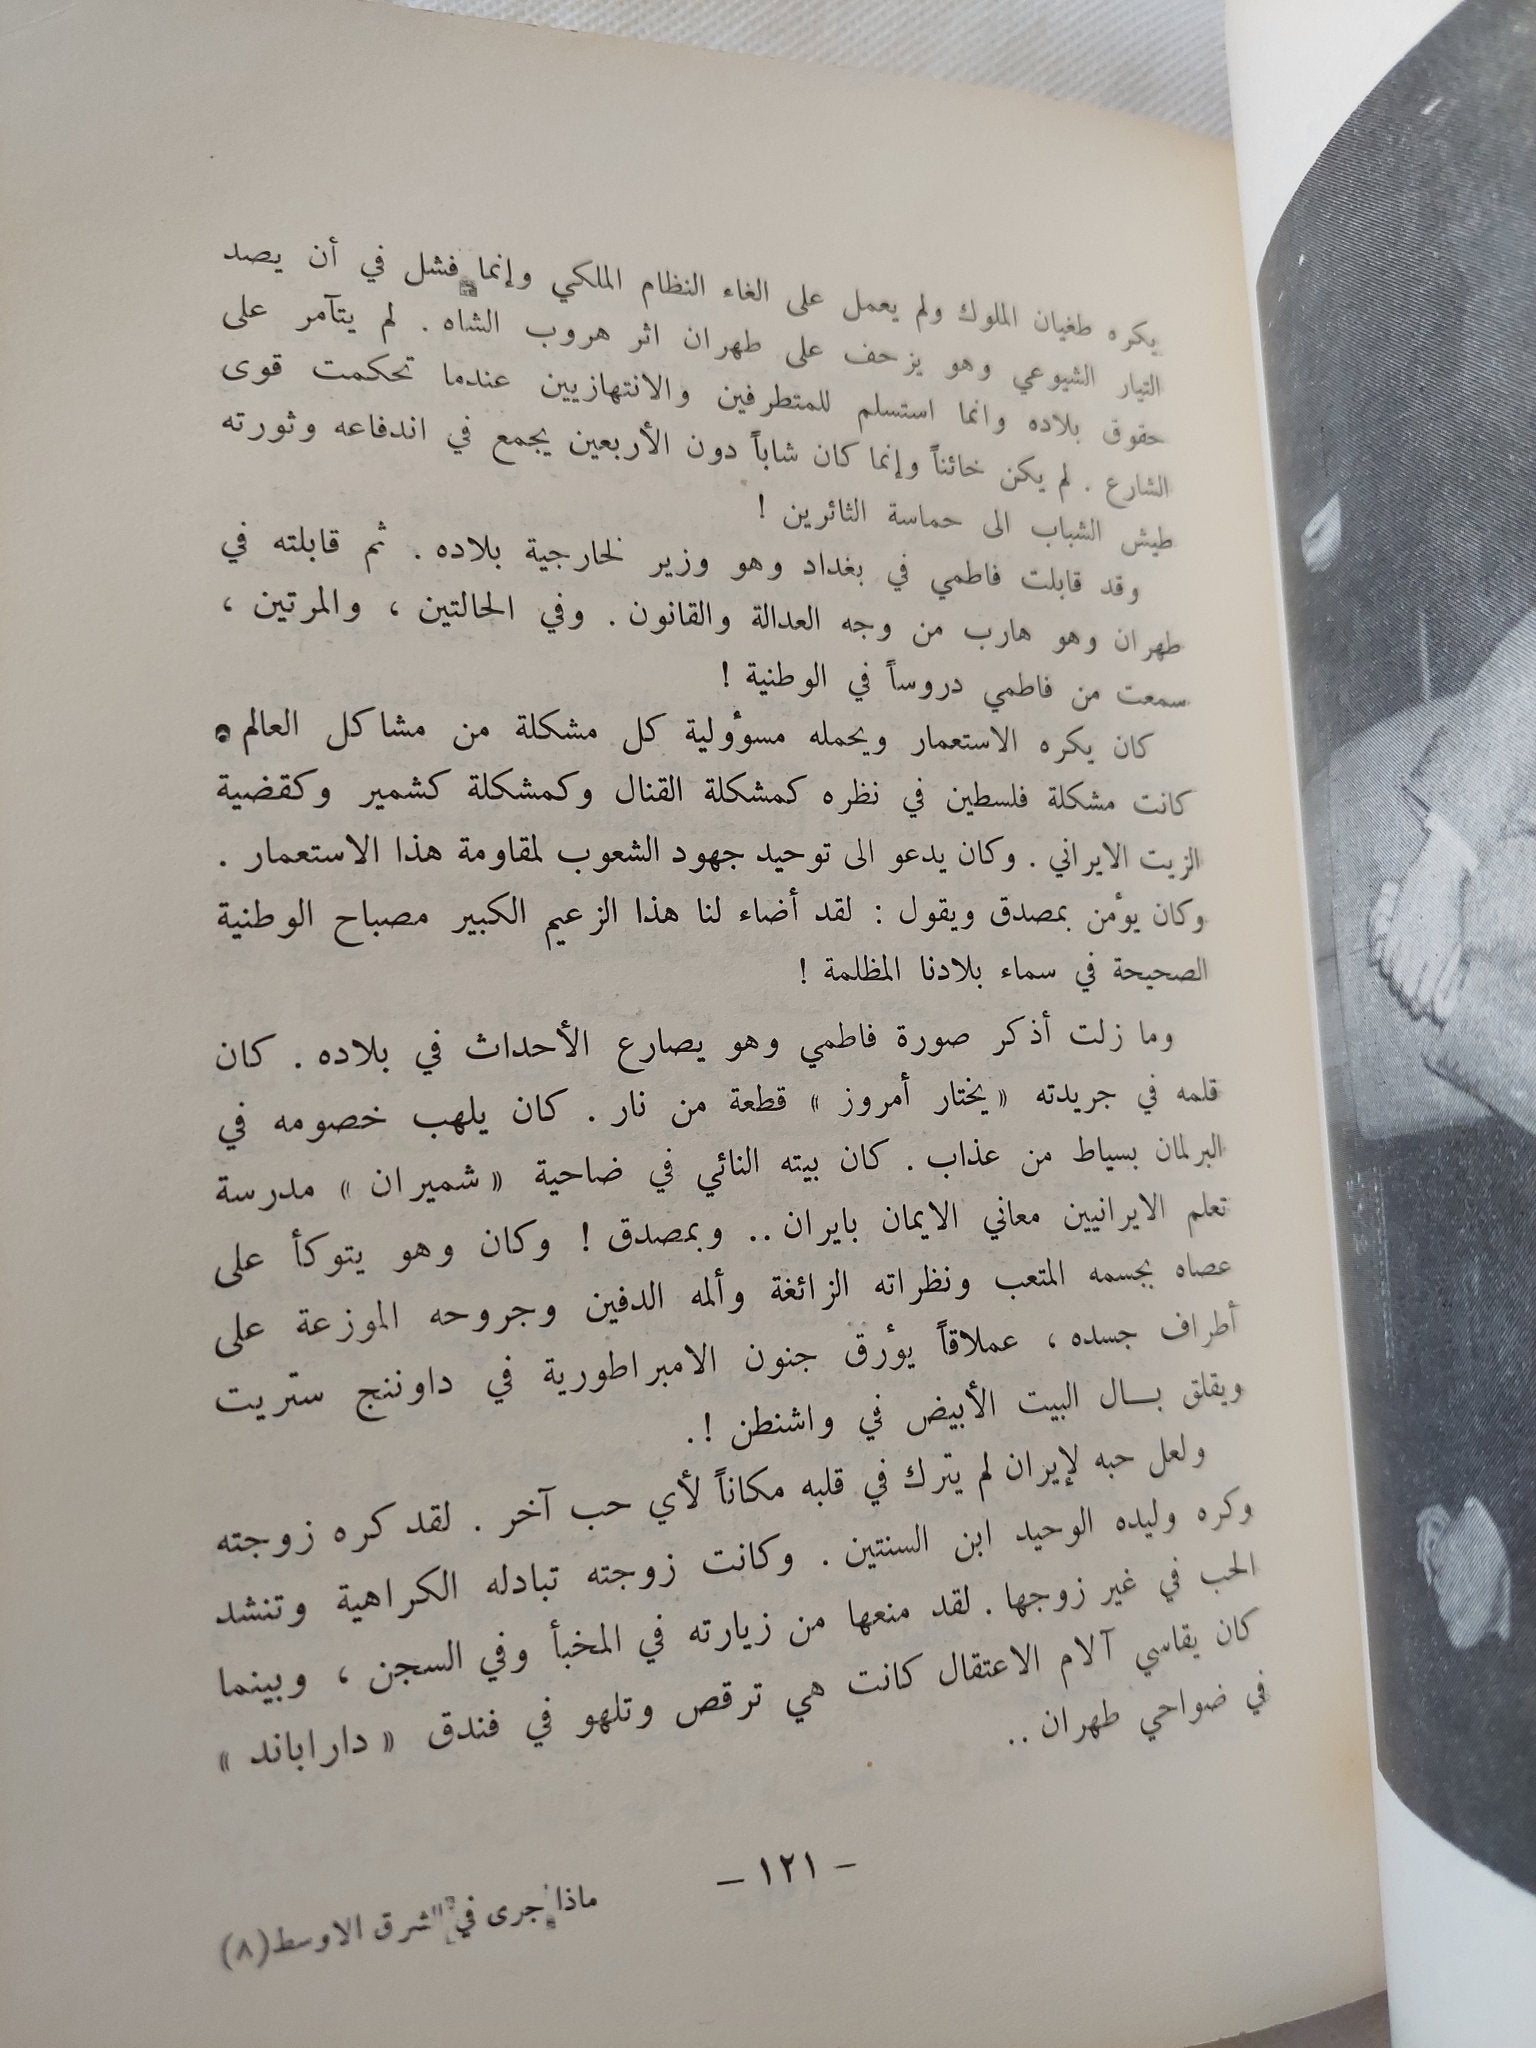 يكره طغيان الملوك ولم يعمل على الغاء النظام الملكي وإنما فشل في أن يصد
التيار الشيوعي وهو يزحف على طهران اثر هروب الشاه . لم يتآمر على
حقوق بلاده وانما استسلم للمتطرفين والانتهازيين عندما تحكمت قوى
الشارع . لم يكن خائناً وإنما كان شاباً دون الأربعين يجمع في اندفاعه وثورته
طيش الشباب الى حماسة الثائرين !
وقد قابلت فاطمي في بغداد وهو وزير لخارجية بلاده . ثم قابلته في
طهران وهو هارب من وجه العدالة والقانون . وفي الحالتين ، والمرتين ،
سمعت من فاطمي دروساً في الوطنية !
كان يكره الاستعمار ويحمله مسؤولية كل مشكلة من مشاكل العالم .
كانت مشكلة فلسطين في نظره كمشكلة القنال وكمشكلة كشمير وكقضية
الزيت الايراني . وكان يدعو الى توحيد جهود الشعوب لمقاومة هذا الاستعمار .
وكان يؤمن بمصدق ويقول : لقد أضاء لنا هذا الزعيم الكبير مصباح الوطنية
الصحيحة في سماء بلادنا المظلمة !
وما زلت أذكر صورة فاطمي وهو يصارع الأحداث في بلاده . كان
قلمه في جريدته « يختار أمروز » قطعة من نار . كان يلهب خصومه في
البرلمان بسياط من عذاب . كان بيته النائي في ضاحية « شميران » مدرسة
تعلم الايرانيين معاني الايمان بايران .. وبمصدق ! وكان وهو يتوكأ على
عصاه بجسمه المتعب ونظراته الزائغة وألمه الدفين وجروحه الموزعة على
أطراف جسده ، عملاقاً يؤرق جنون الامبراطورية في داوننج ستريت
ويقلق بــال البيت الأبيض في واشنطن !.
ولعل حبه لإيران لم يترك في قلبه مكاناً لأي حب آخر . لقد كره زوجته
وكره وليده الوحيد ابن السنتين . وكانت زوجته تبادله الكراهية وتنشد
الحب في غير زوجها . لقد منعها من زيارته في المخبأ وفي السجن ، وبينما
كان يقاسي آلام الاعتقال كانت هي ترقص وتلهو في فندق « داراباند »
في ضواحي طهران ..
– ١٢١ –
ماذا جرى في الشرق الاوسط (٨)